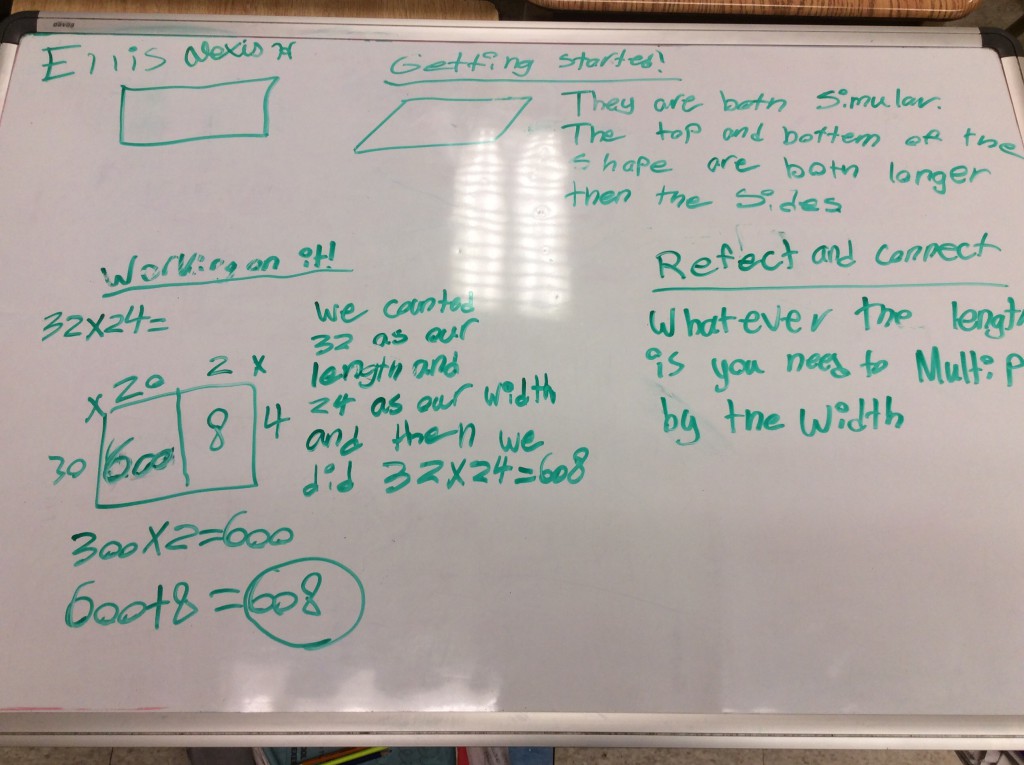 Ellis Alexis H
Getting started!
They are both Simular.
The top and bottem of the
shape are both longer
then the Sides
Working on it!
32x24=
x 20 2 x
30 600 8 4
300x2=600
600+8=608
we counted
32 as our
length and
24 as our width
and then we
did 32x24=608
Refect and connect
Whatever the length
is you need to Multip
by the width